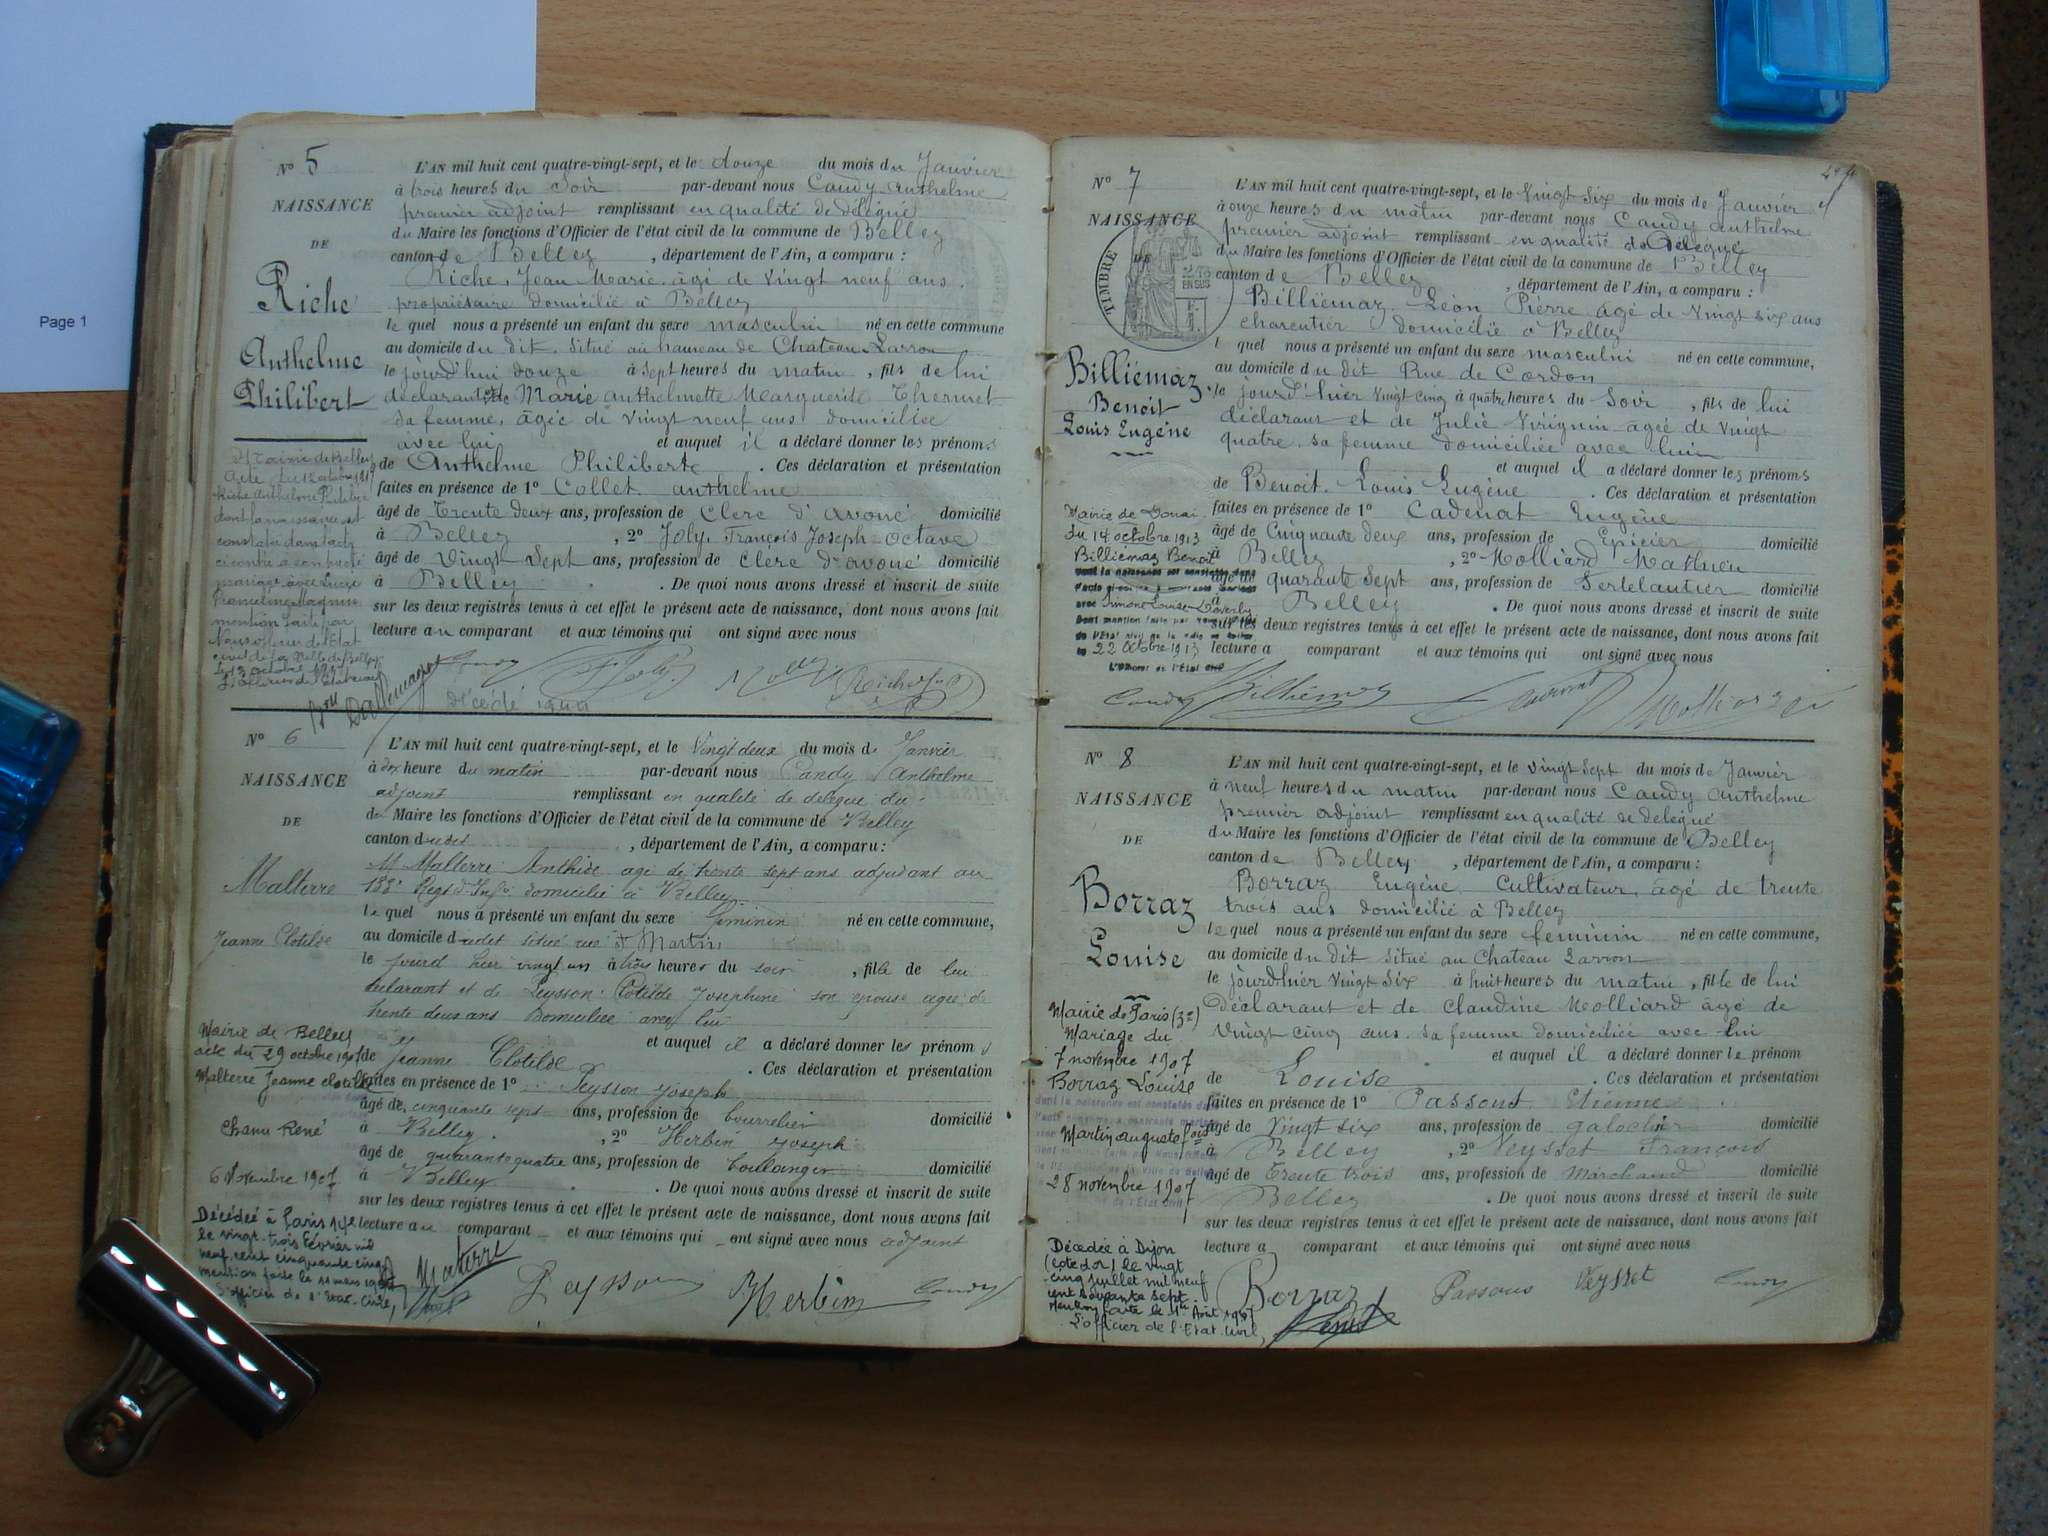 Page 1
N° 5
NAISSANCE
DE
Riche
Anthelme
Philibert
L'AN mil huit cent quatre-vingt-sept, et le douze du mois du Janvier
à trois heures du soir par-devant nous Candy Anthelme
premier adjoint remplissant en qualité de délégué
du Maire les fonctions d'Officier de l'état civil de la commune de Belley
canton de Belley, département de l'Ain, a comparu :
Riche, Jean Marie, âgé de vingt neuf ans,
propriétaire domicilié à Belley
lequel nous a présenté un enfant du sexe masculin né en cette commune
au domicile du dit, situé au hameau de Chateau Larron
le jourd'hui douze à sept heures du matin, fils de lui
déclarant et de Marie Anthelmette Marguerite
sa femme, âgée de vingt neuf ans domiciliée
avec lui et auquel il a déclaré donner les prénoms
de Anthelme Philibert. Ces déclaration et présentation
faites en présence de 1° Collet anthelme
âgé de Trente deux ans, profession de clerc d'avoué domicilié
à Belley, 2° Joly, François Joseph Octave
âgé de Vingt Sept ans, profession de clerc d'avoué domicilié
à Belley. De quoi nous avons dressé et inscrit de suite
sur les deux registres tenus à cet effet le présent acte de naissance, dont nous avons fait
lecture au comparant et aux témoins qui ont signé avec nous
Mairie de Belley
Riche Anthelme Philibert
dont la naissance est
constatée dans l'acte
ci-contre a contracté
mariage avec
mention faite par
Nous officier de l'Etat
civil de la Ville de Belley
Décédé
N° 6
NAISSANCE
DE
Malterre
Jeanne Clotilde
L'AN mil huit cent quatre-vingt-sept, et le Vingt deux du mois de Janvier
à dix heure du matin par-devant nous Candy Anthelme
adjoint remplissant en qualité de délégué du
de Maire les fonctions d'Officier de l'état civil de la commune de Belley
canton dudit, département de l'Ain, a comparu :
M Malterre âgé de trente sept ans adjudant au
133e Regt d'Infie domicilié à Belley
lequel nous a présenté un enfant du sexe féminin né en cette commune,
au domicile dudit situé rue St Martin
le jourd hier vingt un à trois heures du soir, fille de lui
déclarant et de Peysson Clotilde Joséphine son épouse âgée de
trente deux ans Domiciliée avec lui
et auquel il a déclaré donner les prénoms
de Jeanne Clotilde. Ces déclaration et présentation
faites en présence de 1° Peysson Joseph
âgé de cinquante sept ans, profession de bourrelier domicilié
à Belley, 2° Herbin Joseph
âgé de quarante quatre ans, profession de boulanger domicilié
à Belley. De quoi nous avons dressé et inscrit de suite
sur les deux registres tenus à cet effet le présent acte de naissance, dont nous avons fait
lecture au comparant et aux témoins qui ont signé avec nous adjoint
Mairie de Belley
acte du 29 octobre 1907
Malterre Jeanne Clotilde
Chanu René
6 Novembre 1907
Décédée à Paris 14e
le vingt-trois Février mil
neuf cent cinquante cinq
mention faite le 11 mars
L'officier de l'Etat-Civil,
Malterre
Peysson Herbin Candy
N° 7
NAISSANCE
DE
TIMBRE
Billiémaz
Benoit
Louis Eugène
L'AN mil huit cent quatre-vingt-sept, et le Vingt Six du mois de Janvier
à onze heures du matin par-devant nous Candy Anthelme
premier adjoint remplissant en qualité de Délégué
du Maire les fonctions d'Officier de l'état civil de la commune de Belley
canton de Belley, département de l'Ain, a comparu :
Billiémaz Léon Pierre âgé de Vingt six ans
charentier domicilié à Belley
lequel nous a présenté un enfant du sexe masculin né en cette commune,
au domicile du dit Rue de Cordon
le jourd'hier vingt cinq à quatre heures du Soir, fils de lui
déclarant et de Julie Virignin âgée de Vingt
quatre, sa femme domiciliée avec lui
et auquel il a déclaré donner les prénoms
de Benoit, Louis Eugène. Ces déclaration et présentation
faites en présence de 1° Cadenat Eugène
âgé de Cinquante deux ans, profession de Epicier domicilié
à Belley, 2° Molliard Mathieu
âgé de quarante Sept ans, profession de Ferblantier domicilié
à Belley. De quoi nous avons dressé et inscrit de suite
sur les deux registres tenus à cet effet le présent acte de naissance, dont nous avons fait
lecture a comparant et aux témoins qui ont signé avec nous
Mairie de Douai
Du 14 octobre 1913
Billiémaz Benoit
dont la naissance est constatée dans
avec Simone Louise
22 octobre 1913
L'Officier de l'Etat civil
Candy Billiémaz Cadenat Molliard
N° 8
NAISSANCE
DE
Borraz
Louise
L'AN mil huit cent quatre-vingt-sept, et le vingt sept du mois de Janvier
à neuf heures du matin par-devant nous Candy Anthelme
premier adjoint remplissant en qualité de délégué
du Maire les fonctions d'Officier de l'état civil de la commune de Belley
canton de Belley, département de l'Ain, a comparu :
Borraz Eugène, Cultivateur, âgé de trente
trois ans domicilié à Belley
lequel nous a présenté un enfant du sexe féminin né en cette commune,
au domicile du dit situé au Chateau Larron
le jourd'hier Vingt Six à huit heures du matin, fille de lui
Déclarant et de Claudine Molliard âgé de
Vingt cinq ans, sa femme domiciliée avec lui
et auquel il a déclaré donner le prénom
de Louise. Ces déclaration et présentation
faites en présence de 1° Passout Etienne
âgé de Vingt six ans, profession de galochier domicilié
à Belley, 2° Veysset François
âgé de Trente trois ans, profession de Marchand domicilié
Belley. De quoi nous avons dressé et inscrit de suite
sur les deux registres tenus à cet effet le présent acte de naissance, dont nous avons fait
lecture a comparant et aux témoins qui ont signé avec nous
Mairie de Paris (3e)
Mariage du
7 novembre 1907
Borraz Louise
dont la naissance est constatée
Martin auguste fois
28 novembre 1907
de l'Etat civil
Décédée à Dijon
(côte d'or) le vingt
cinq juillet mil neuf
cent soixante sept
Mention faite le 1er Août 1967
L'officier de l'Etat-Civil,
Borraz Veysset Candy